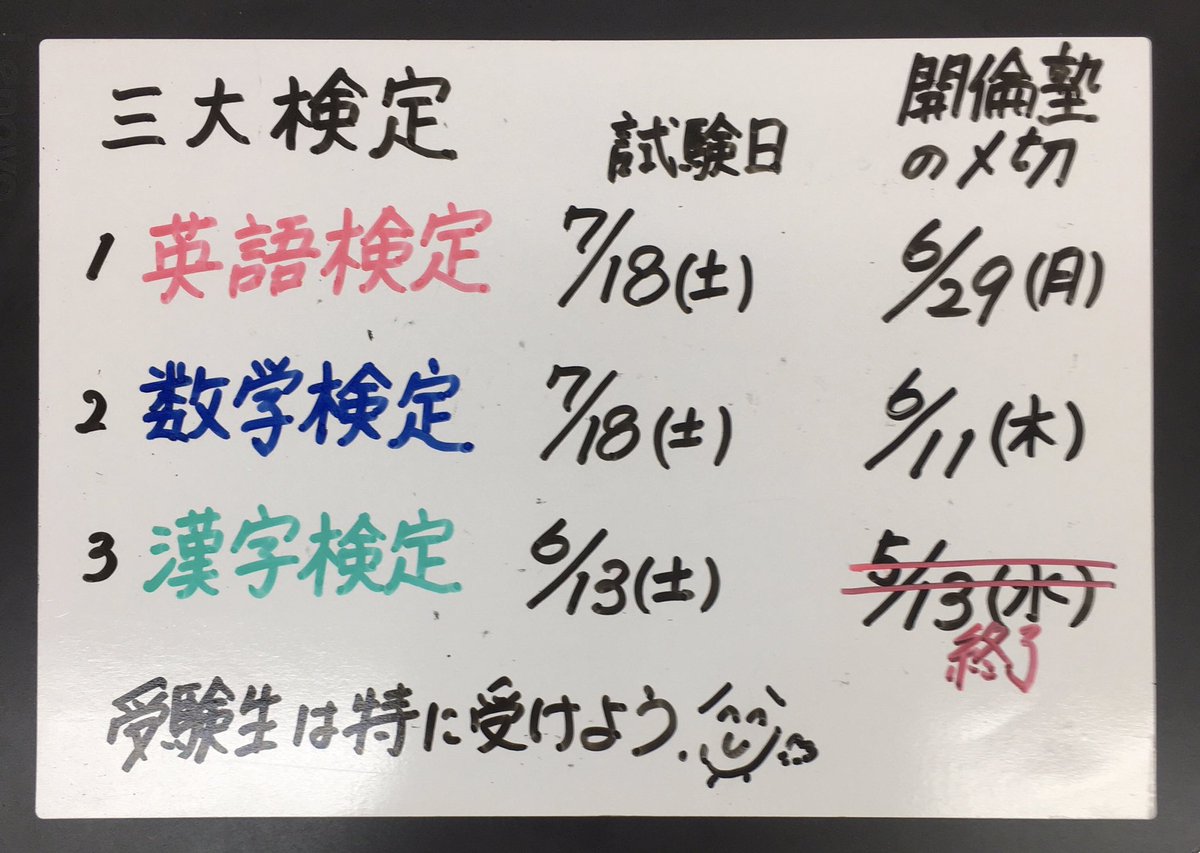 三大検定 試験日 開倫塾
の〆切
1 英語検定 7/18(土) 6/29(月)
2 数学検定 7/18(土) 6/11(木)
3 漢字検定 6/13(土) 5/13(水)
終了
受験生は特に受けよう.